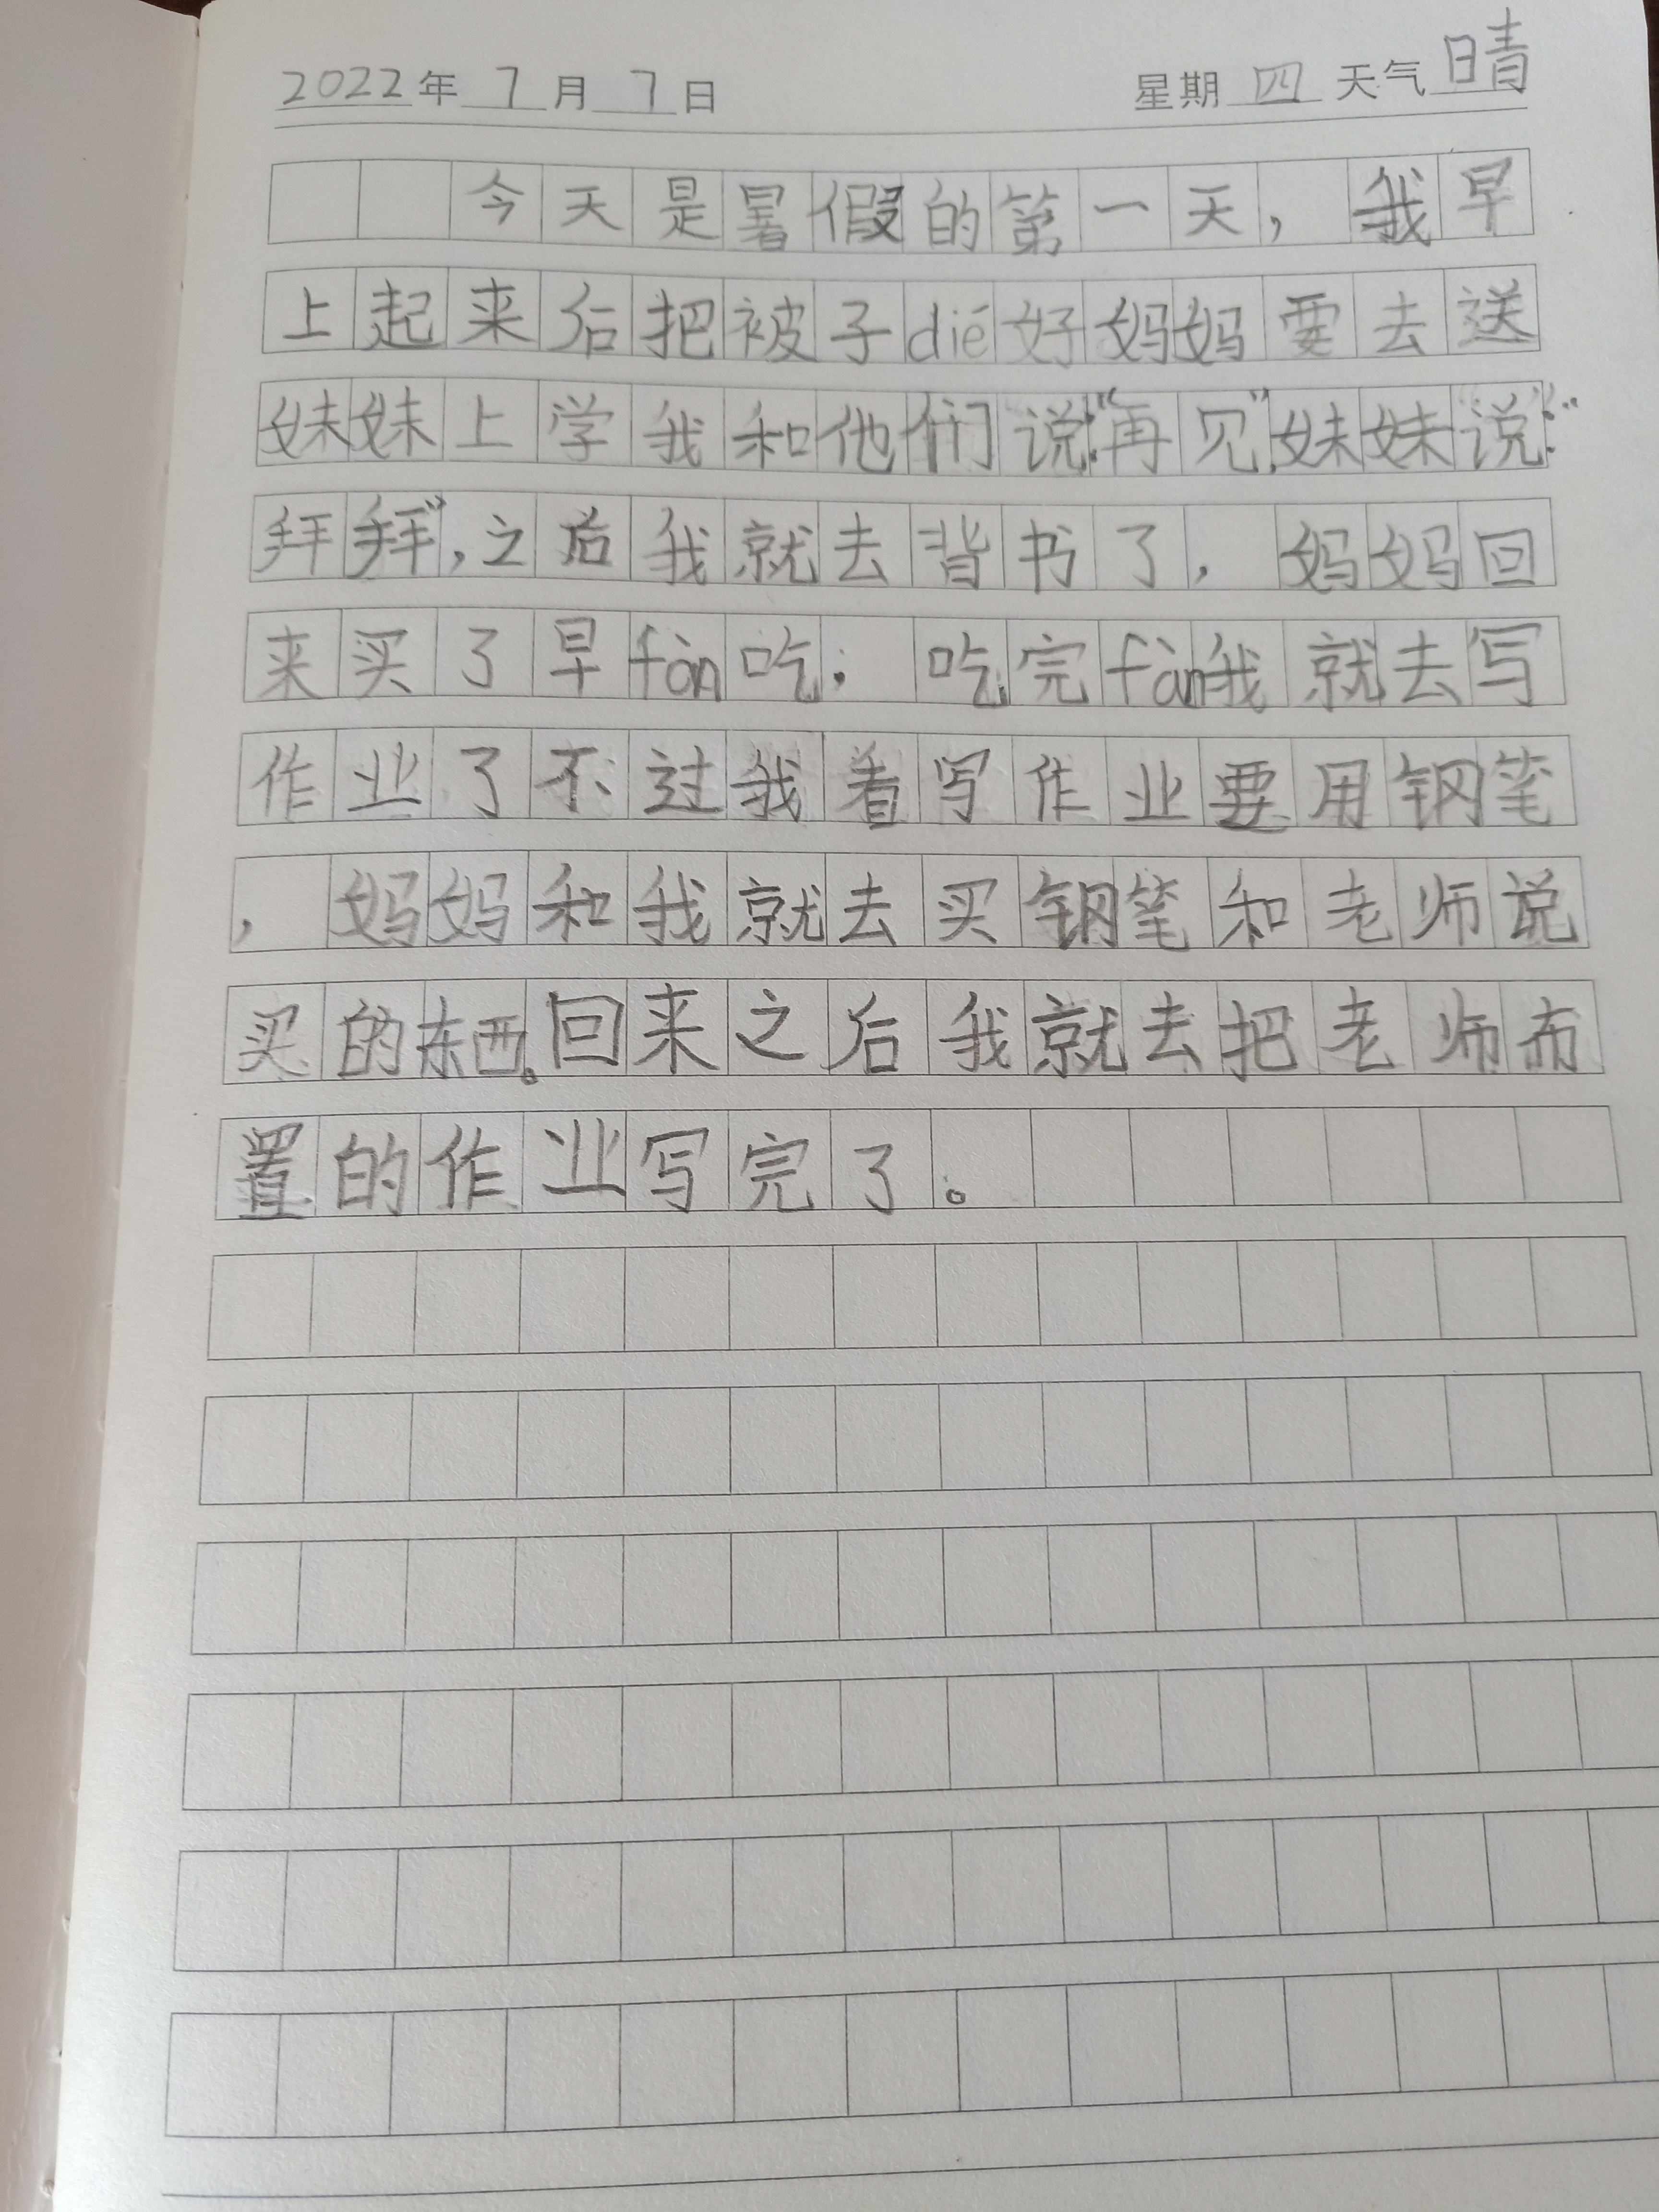 2022年7月7日 星期四 天气晴
今天是暑假的第一天，我早
上起来后把被子dié好妈妈要去送
妹妹上学我和他们说:“再见”,妹妹说:“
拜拜”,之后我就去背书了，妈妈回
来买了早fàn吃；吃完fàn我就去写
作业了不过我看写作业要用钢笔
，妈妈和我就去买钢笔和老师说
买的东西。回来之后我就去把老师布
置的作业写完了。